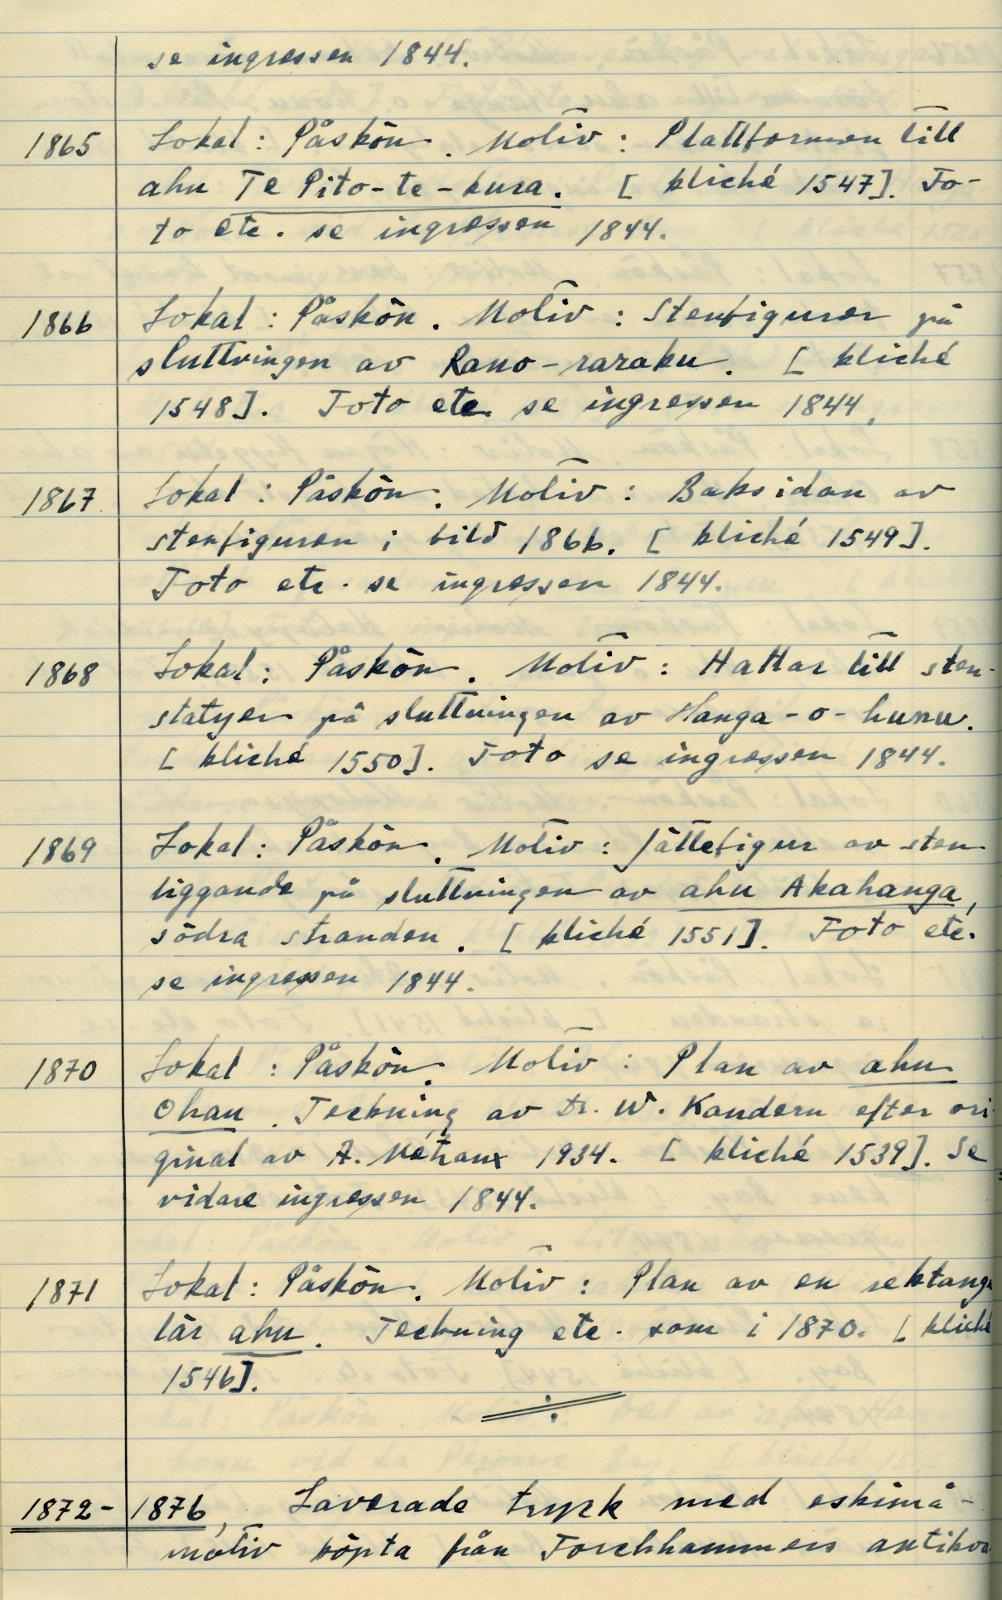 se ingressen 1844.
1865 Lokal: Påskön. Motiv: Plattformen till
ahu Te Pito-te-kura. [kliché 1547]. Fo-
to etc. se ingressen 1844.
1866 Lokal: Påskön. Motiv: Stenfigurer på
sluttningen av Rano-raraku. [kliché
1548]. Foto etc. se ingressen 1844.
1867 Lokal: Påskön. Motiv: Baksidan av
stenfiguren i bild 1866. [kliché 1549].
Foto etc. se ingressen 1844.
1868 Lokal: Påskön. Motiv: Hattar till sten-
statyer på sluttningen av Hanga-o-hunu.
[kliché 1550]. Foto se ingressen 1844.
1869 Lokal: Påskön. Motiv: Jättefigur av sten
liggande på sluttningen av ahu Akahanga,
södra stranden. [kliché 1551]. Foto etc.
se ingressen 1844.
1870 Lokal: Påskön. Motiv: Plan av ahu
Ohau. Teckning av Dr. W. Kandern efter ori-
ginal av A. Métraux 1934. [kliché 1539]. Se
vidare ingressen 1844.
1871 Lokal: Påskön. Motiv: Plan av en rektangu
lär ahu. Teckning etc. som i 1870. [kliché
1546].
1872-1876, Laverade tryck med eskimå-
motiv köpta från Forchhammers antikva